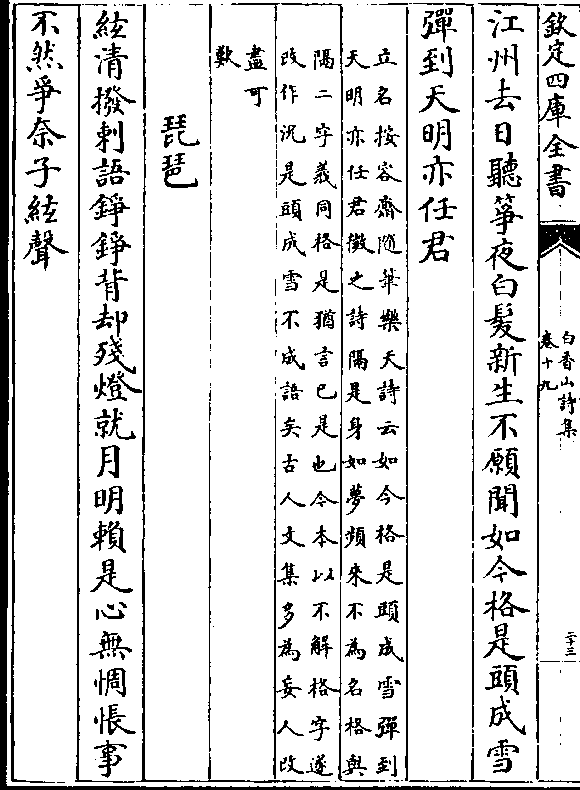 欽定四庫全書
白香山詩集
卷十九
二十三
江州去日聽箏夜白髮新生不願聞如今格是頭成雪
彈到天明亦任君
立名按容齋隨筆樂天詩云如今格是頭成雪彈到
天明亦任君微之詩隔是身如夢頻來不為名格與
隔二字義同格是猶言已是也今本以不解格字遂
改作況是頭成雪不成語矣古人文集多為妄人改
盡可
歎
琵琶
絃清撥剌語錚錚背却殘燈就月明賴是心無惆悵事
不然爭奈子絃聲